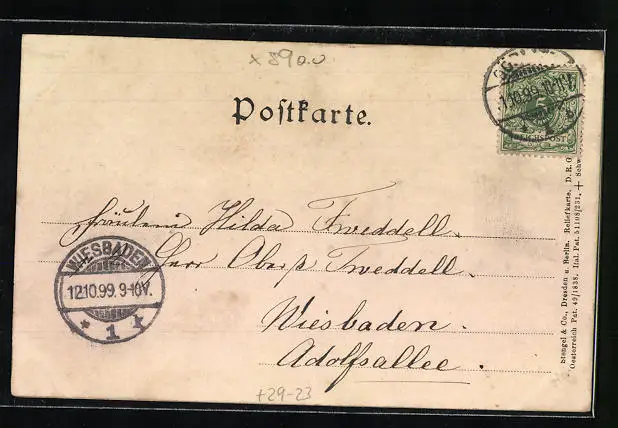 x 8900
Postkarte.
5
REICHSPOST
10.99. 10-11V.
Fräulein Hilda Tweddell.
Herr Oberst Tweddell.
Wiesbaden.
Adolfsallee.
WIESBADEN
12.10.99. 9-10V.
* 1 *
Stengel & Co., Dresden u. Berlin. Reliefkarte. D. R. G.
Oesterreich Pat. 49/1838. Ital. Pat. 51108/231. + Schw
+29-23